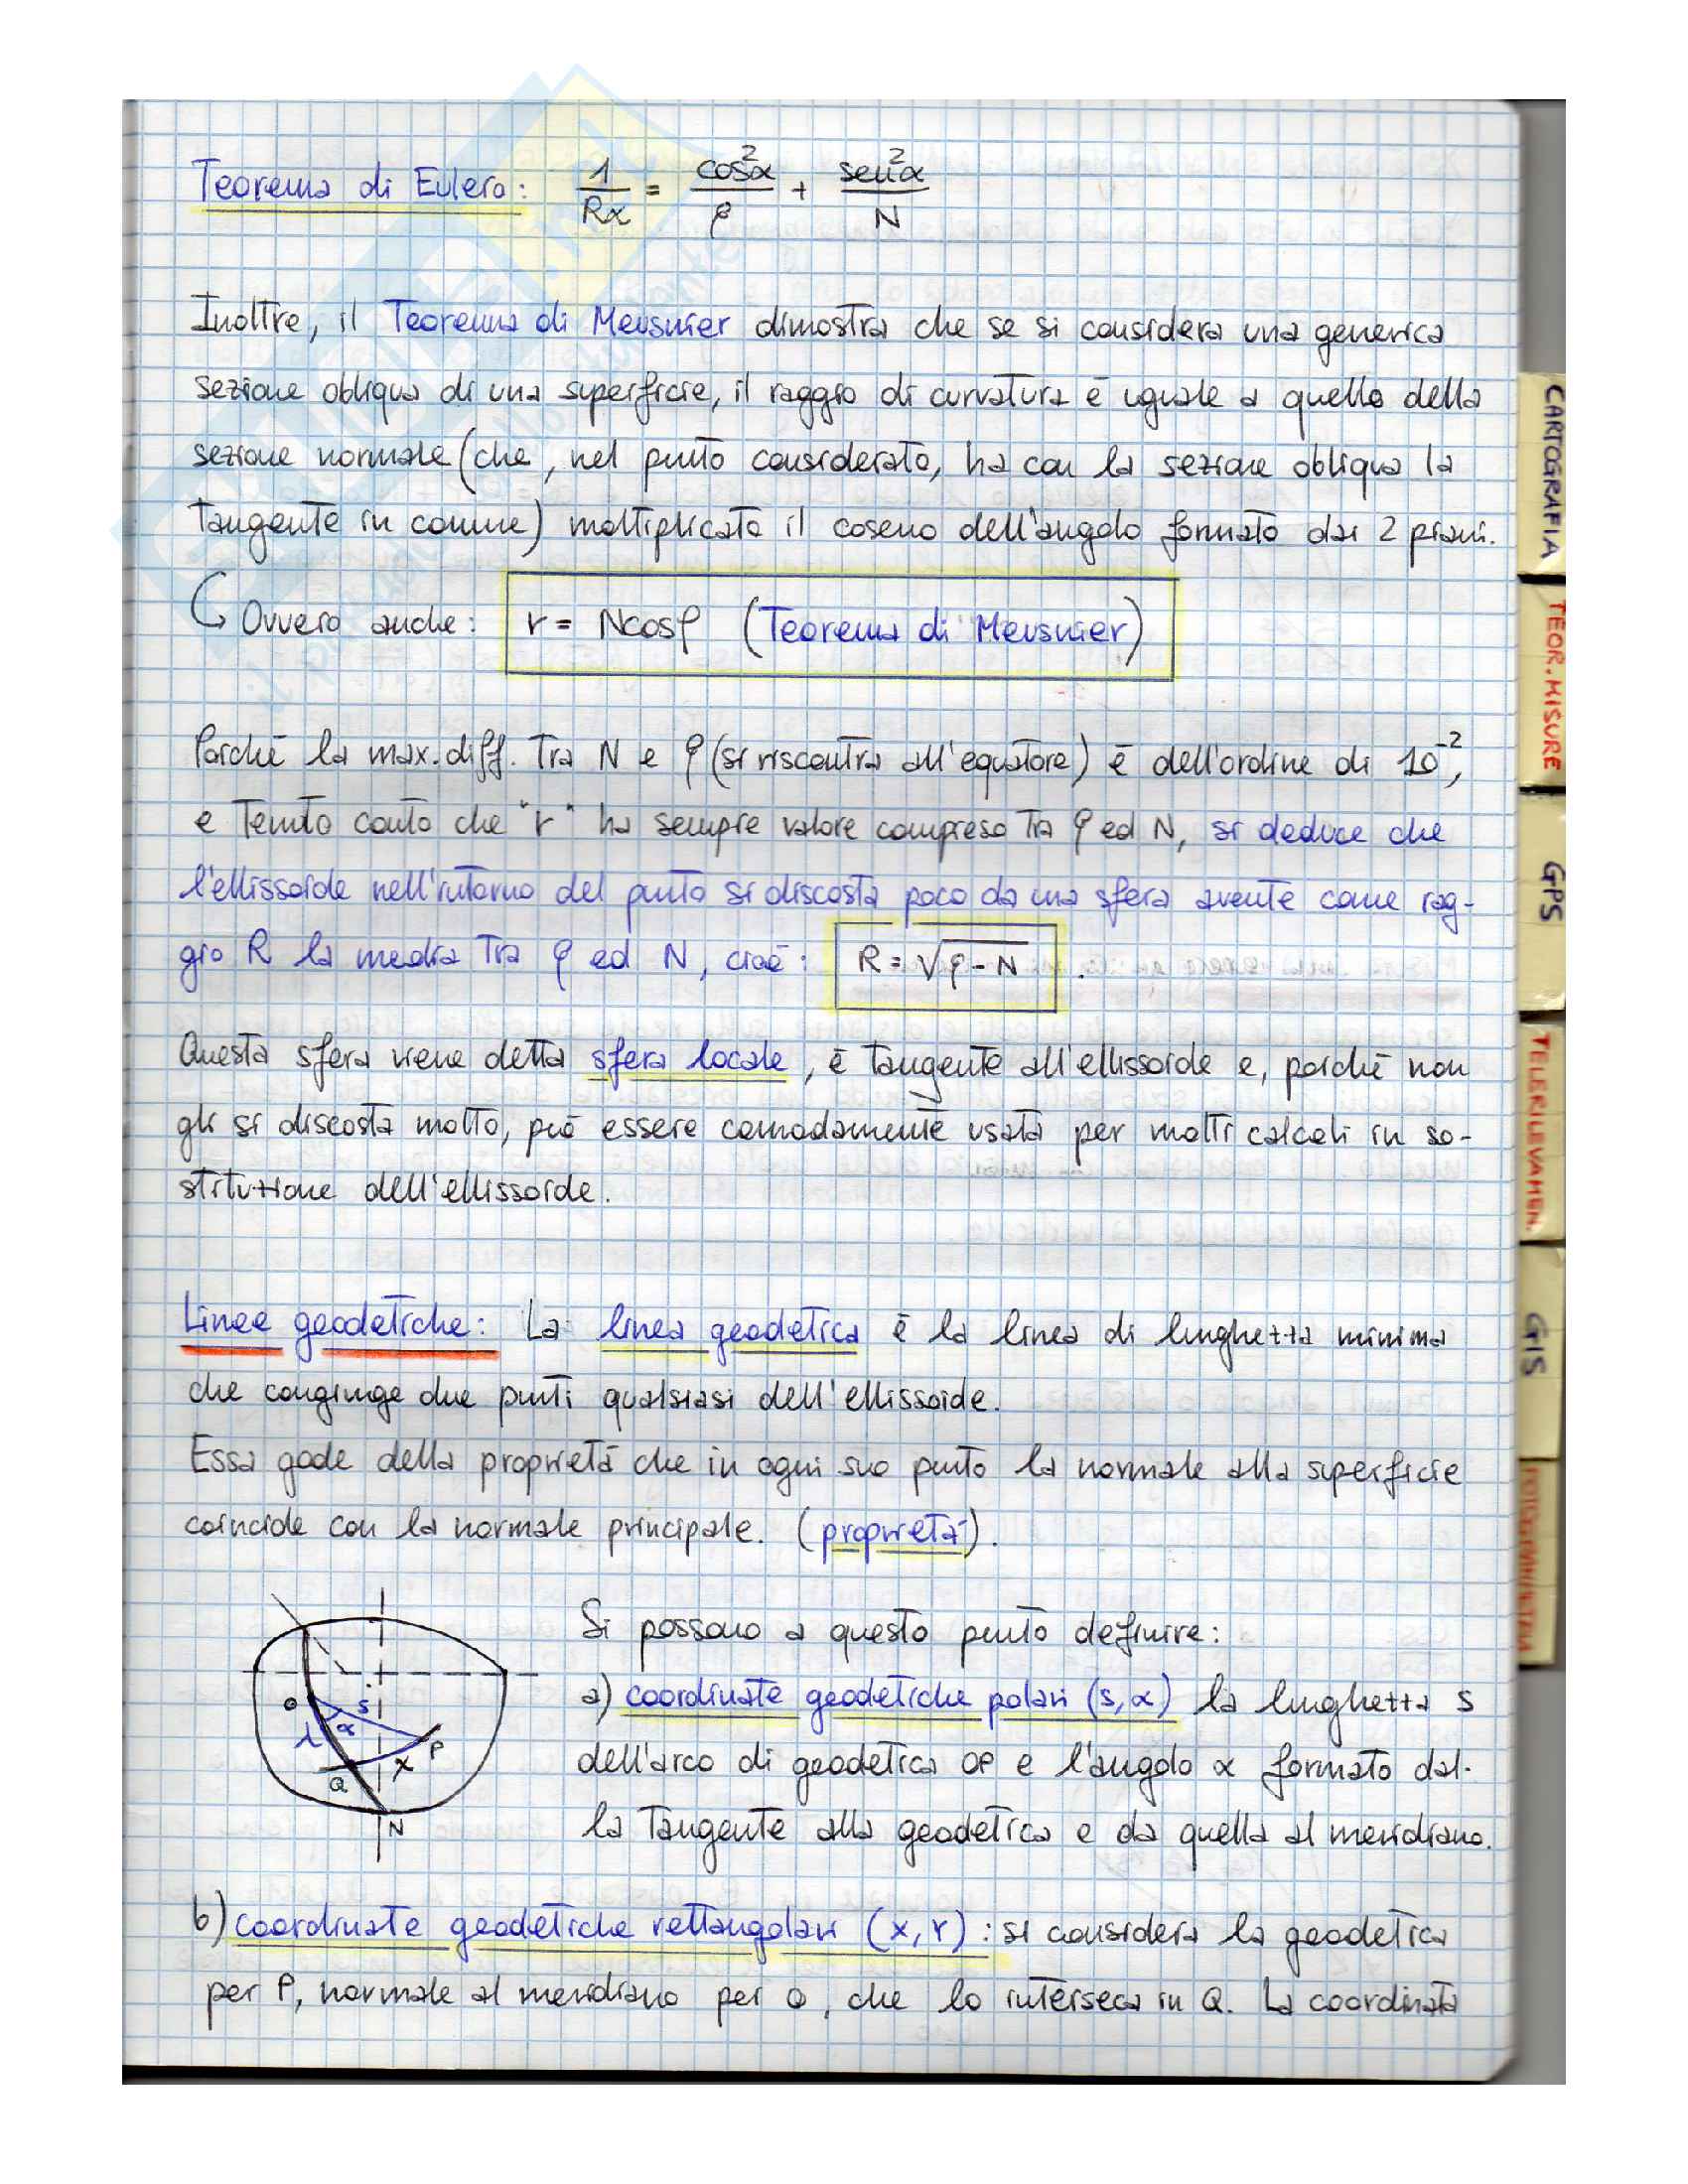 Teorema di Eulero: 1/Rα = cos²α/ρ + sen²α/N
Inoltre, il Teorema di Meusnier dimostra che se si considera una generica
sezione obliqua di una superficie, il raggio di curvatura è uguale a quello della
sezione normale (che, nel punto considerato, ha con la sezione obliqua la
tangente in comune) moltiplicato il coseno dell'angolo formato dai 2 piani.
↳ Ovvero anche: r = Ncosφ (Teorema di Meusnier)
Poiché la max. diff. tra N e ρ (si riscontra all'equatore) è dell'ordine di 10⁻²,
e tenuto conto che "r" ha sempre valore compreso tra ρ ed N, si deduce che
l'ellissoide nell'intorno del punto si discosta poco da una sfera avente come rag-
gio R la media tra ρ ed N, cioè: R = √ρ-N .
Questa sfera viene detta sfera locale, è tangente all'ellissoide e, poiché non
gli si discosta molto, può essere comodamente usata per molti calcoli in so-
stituzione dell'ellissoide.
Linee geodetiche: La linea geodetica è la linea di lunghetta minima
che congiunge due punti qualsiasi dell'ellissoide.
Essa gode della proprietà che in ogni suo punto la normale alla superficie
coincide con la normale principale. (proprietà).
Si possono a questo punto definire:
a) coordinate geodetiche polari (s, α) la lunghetta s
dell'arco di geodetica OP e l'angolo α formato dal-
la tangente alla geodetica e da quella al meridiano.
O
s
α
P
X
Q
N
b) coordinate geodetiche rettangolari (x, Y): si considera la geodetica
per P, normale al meridiano per O, che lo interseca in Q. La coordinata
CARTOGRAFIA
TEOR. MISURE
GPS
TELERILEVAMEN.
GIS